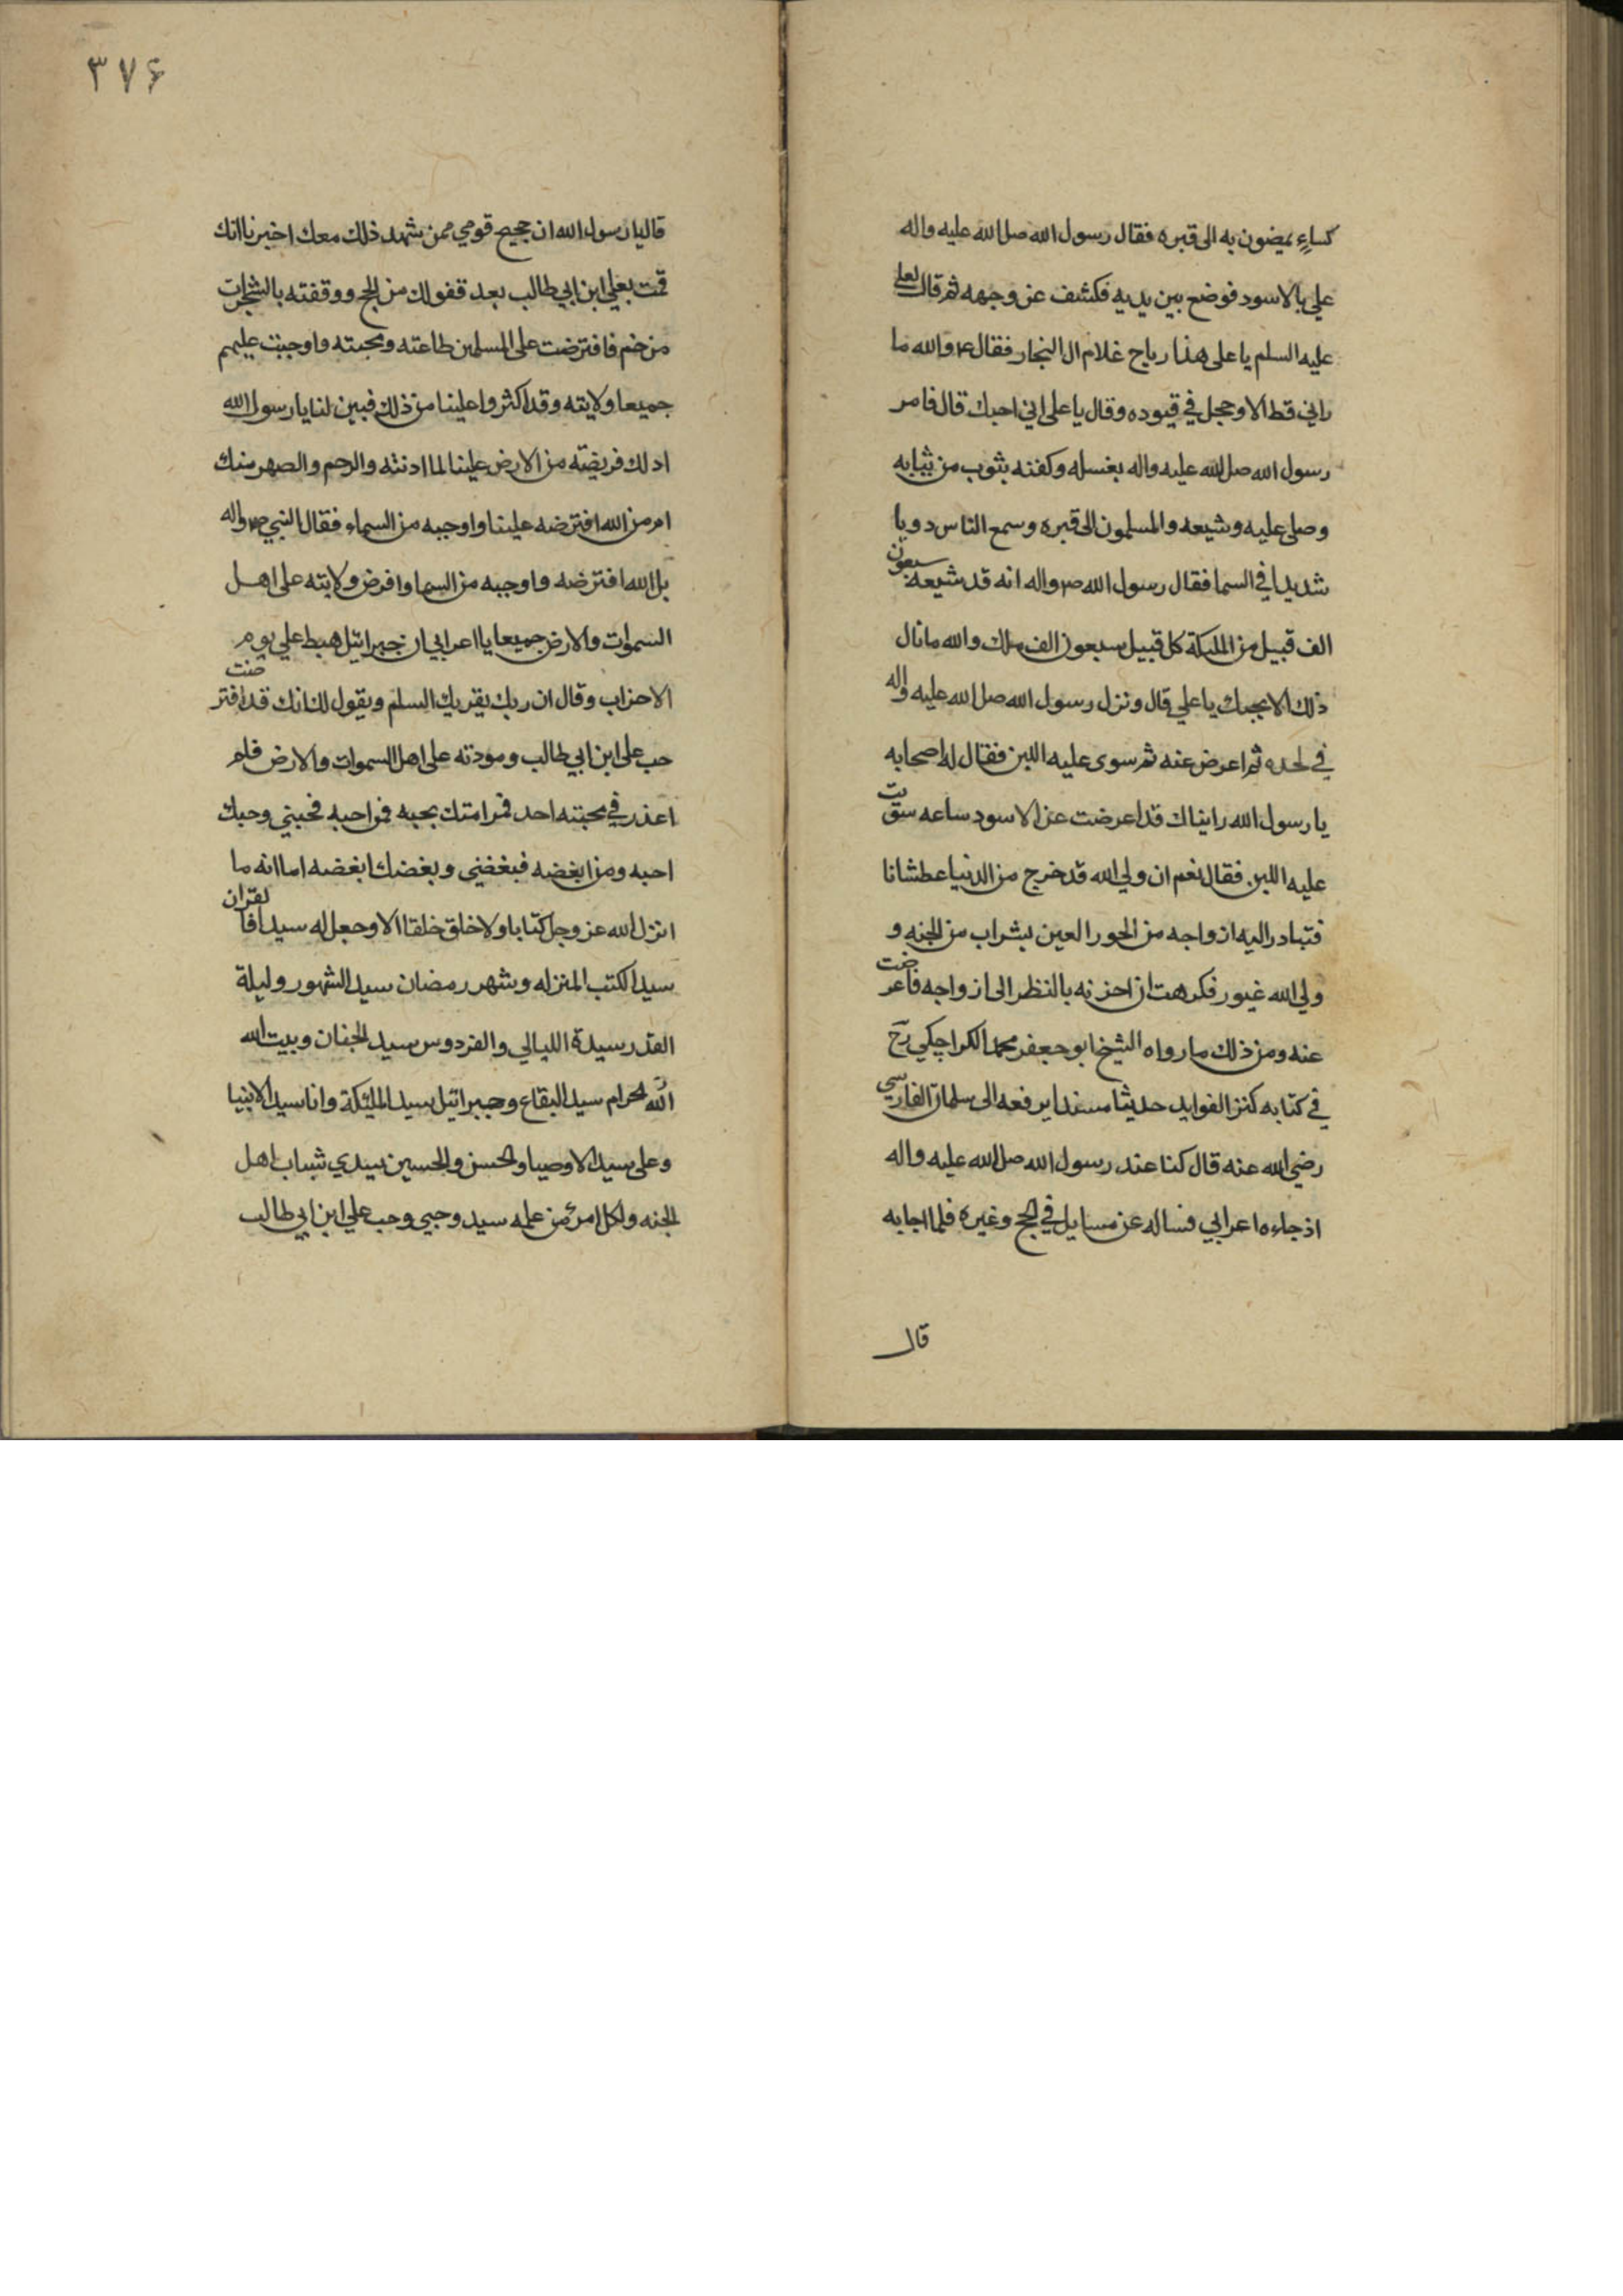 كساءٍ يمضون به الى قبره فقال رسول الله صلى الله عليه واله
علي بالاسود فوضع بين يديه فكشف عن وجهه ثم قال لعلي
عليه السلم يا على هذا رياح غلام ال النجار فقال ع والله ما
راني قط الا وحجل في قيوده وقال يا على اني احبك قال فامر
رسول الله صلى الله عليه واله بغسله وكفنه بثوب من ثيابه
وصلى عليه وشيعه والمسلمون الى قبره وسمع الناس دويا
شديدا في السما فقال رسول الله ص واله انه قد شيعه سبعون
الف قبيل من المليكة كل قبيل سبعون الف ملك والله ما نال
ذلك الا بحبك يا علي قال ونزل رسول الله صلى الله عليه واله
في لحده ثم اعرض عنه ثم سوى عليه اللبن فقال له اصحابه
يا رسول الله رايناك قد اعرضت عن الاسود ساعه سويت
عليه اللبن فقال نعم ان ولي الله قد خرج من الدنيا عطشانا
فتبادر اليه ازواجه من الحور العين بشراب من الجنه و
ولي الله غيور فكرهت ان احزنه بالنظر الى ازواجه فاعرضت
عنه ومن ذلك ما رواه الشيخ ابو جعفر محمد الكراجكي رح
في كتابه كنز الفوايد حديثا مسندا يرفعه الى سلمان الفارسي
رضي الله عنه قال كنا عند رسول الله صلى الله عليه واله
اذ جاءه اعرابي فساله عن مسايل في الحج وغيره فلما اجابه
قال
٣٧۶
قال يا رسول الله ان حجيج قومي ممن شهد ذلك معك اخبرنا انك
قمت بعلي ابن ابي طالب بعد قفولك من الحج ووقفته بالشجرات
من خم فافترضت على المسلمين طاعته ومحبته واوجبت عليهم
جميعا ولايته وقد اكثروا علينا من ذلك فبين لنا يا رسول الله
اذلك فريضة من الارض علينا لما ادنته والرحم والصهر منك
ام من الله افترضه علينا واوجبه من السماء فقال النبي ص واله
بل الله افترضه واوجبه من السما وافرض ولايته على اهل
السموات والارض جميعا يا اعرابي ان جبرائيل هبط علي يوم
الاحزاب وقال ان ربك يقريك السلم ويقول لك انك قد افترضت
حب على ابن ابي طالب ومودته على اهل السموات والارض فلم
اعذر في محبته احد فمر امتك بحبه فمن احبه فحبني وحبك
احبه ومن ابغضه فبغضني وبغضك ابغضه اما انه ما
انزل الله عز وجل كتابا ولا خلق خلقا الا وجعل له سيدا فالقران
سيد الكتب المنزله وشهر رمضان سيد الشهور وليلة
القدر سيدة الليالي والفردوس سيد الجنان وبيت الله
الله الحرام سيد البقاع وجبرائيل سيد المليكة وانا سيد الانبيا
وعلى سيد الاوصيا والحسن والحسين سيدي شباب اهل
الجنه ولكل امرئ من عمله سيد وحبي وحب علي ابن ابي طالب